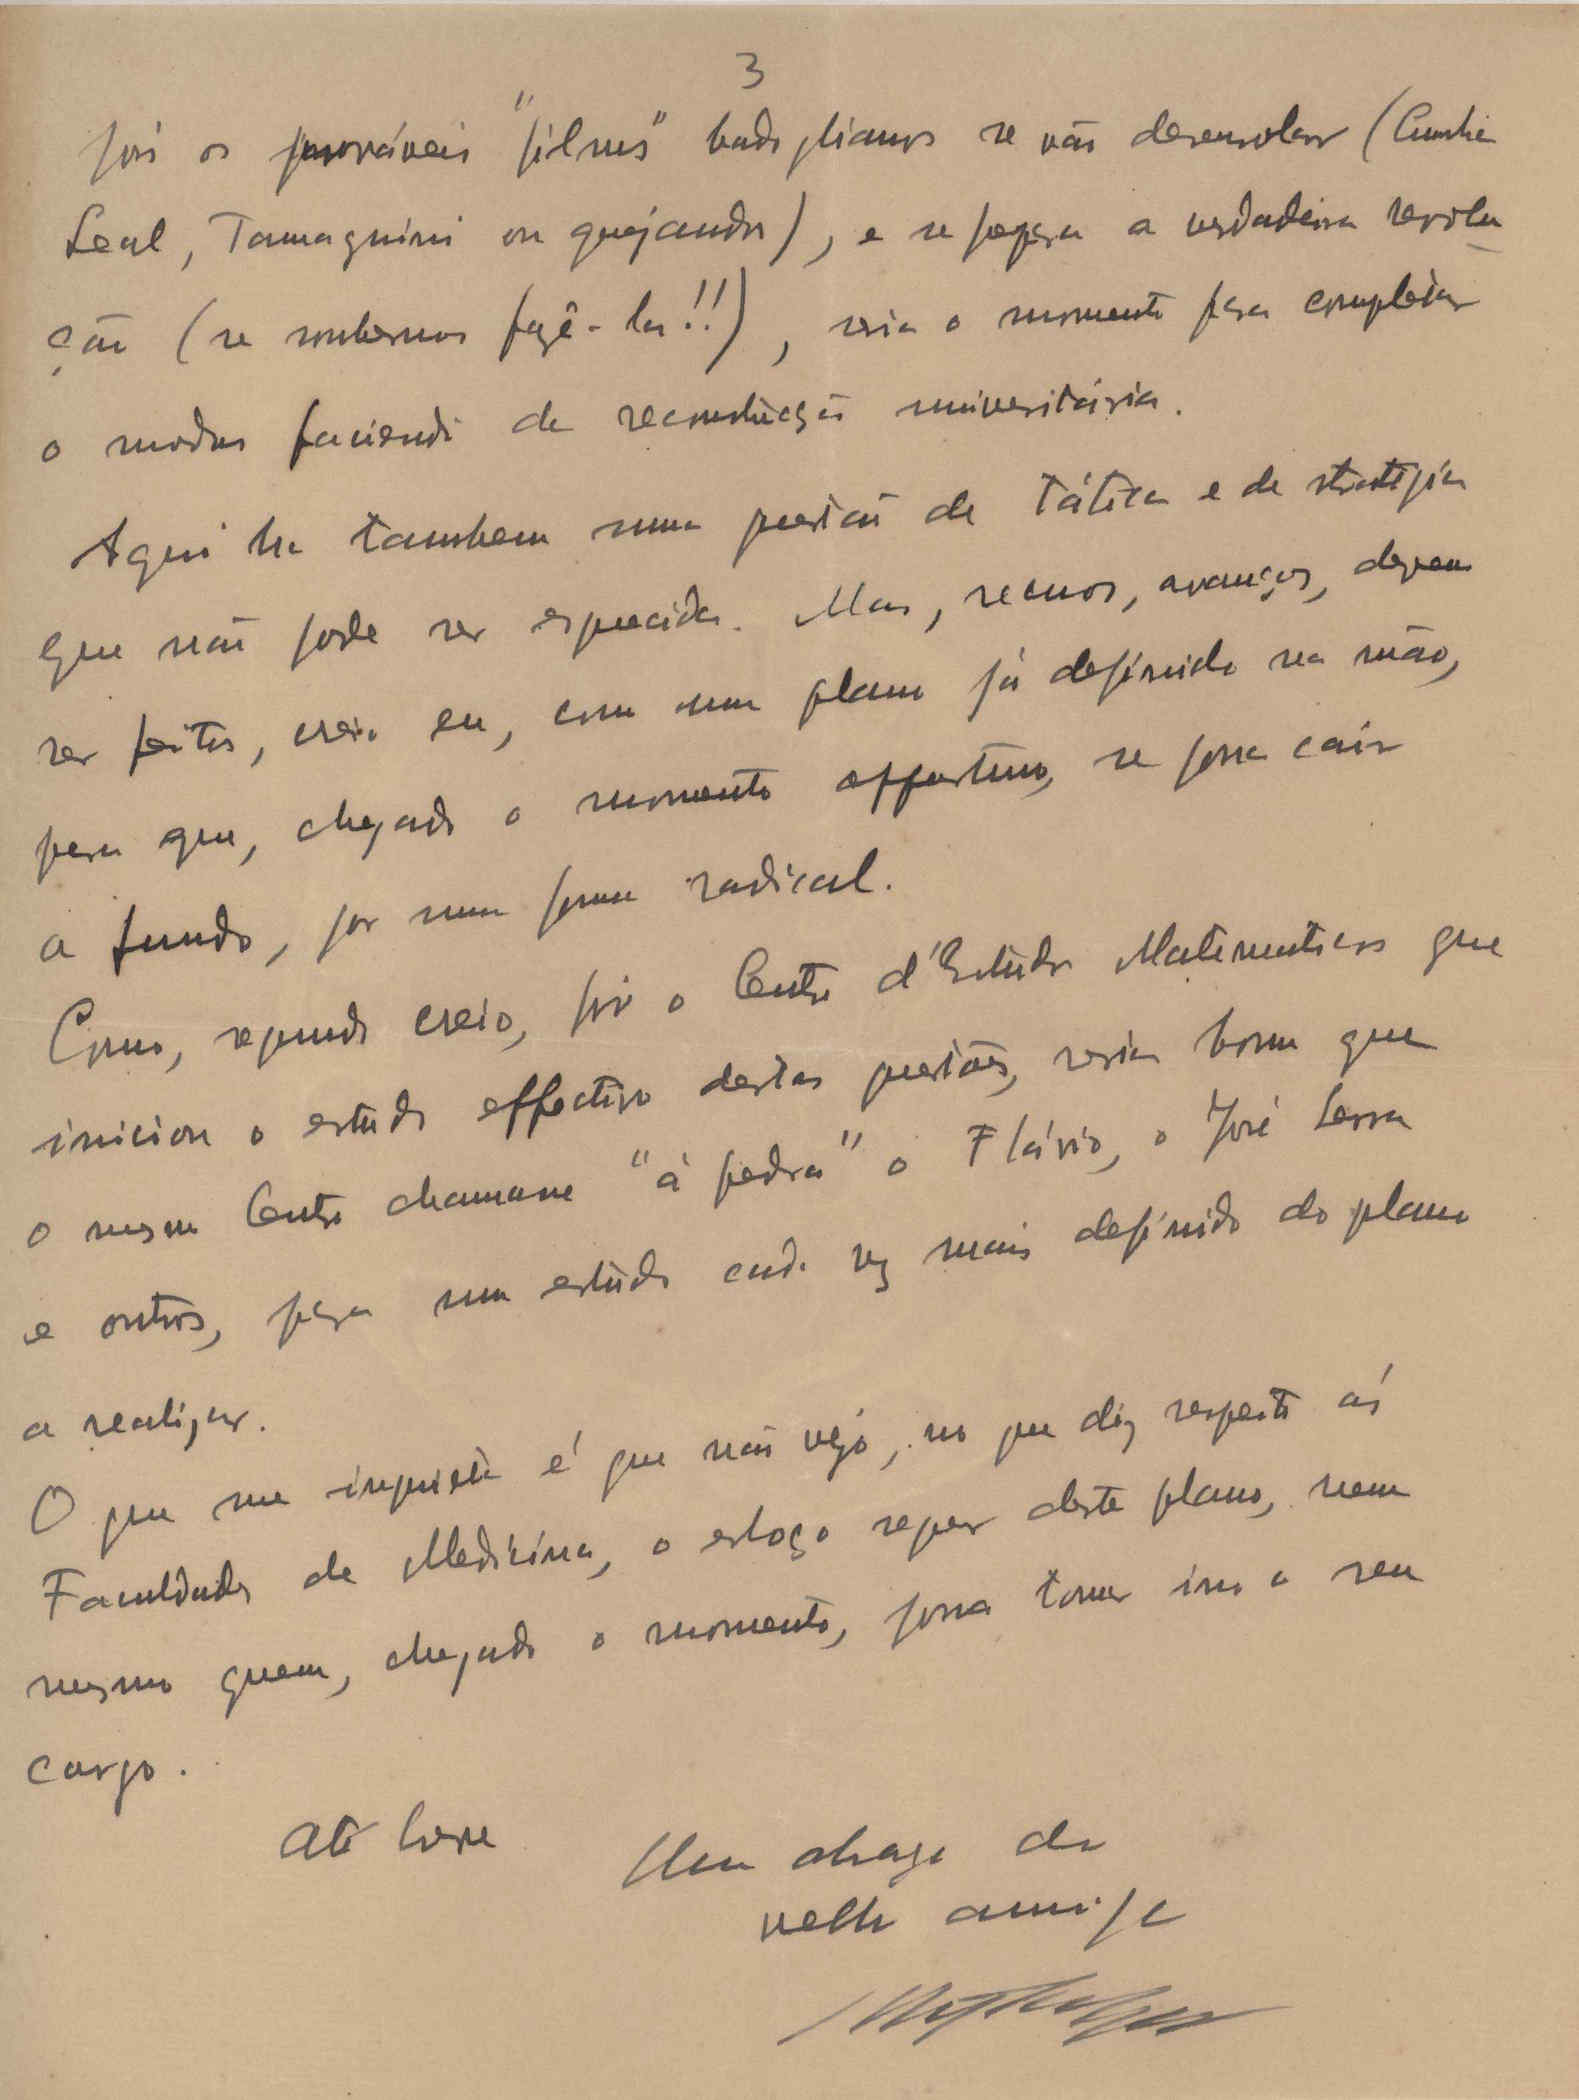 3
pois os prováveis "films" badoglianos se vão desenrolar (Cunha
Leal, Tamagnini ou quejandos), e se prepara a verdadeira revolu
ção (se soubermos fazê-la!!), seria o momento para completar
o modus faciendi da reconstrução universitária.
Aqui ha tambem uma questão de tática e de strategia
que não pode ser esquecida. Mas, recuos, avanços, devem
ser feitos, creio eu, com um plano já definido na mão,
para que, chegado o momento opportuno, se possa cair
a fundo, por uma forma radical.
Como, segundo creio, foi o Centro d'Estudos Matematicos que
iniciou o estudo effectivo destas questões, seria bom que
o mesmo Centro chamasse "à pedra" o Flávio, o José Serra
e outros, para um estudo cada vez mais definido do plano
a realizar.
O que me inquieta é que não vejo, no que diz respeito ás
Faculdades de Medicina, o esboço sequer deste plano, nem
mesmo quem, chegado o momento, possa tomar isso a seu
cargo.
Até breve Um abraço do
velho amigo